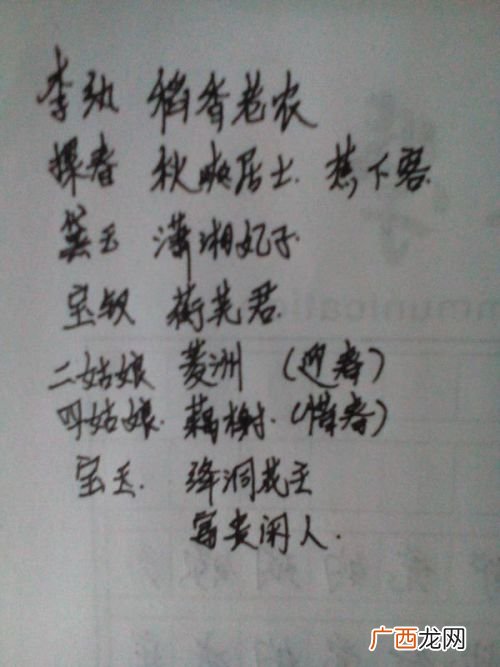 李纨 稻香老农
探春 秋爽居士. 蕉下客.
黛玉 潇湘妃子
宝钗 蘅芜君
二姑娘 菱洲 (迎春)
四姑娘. 藕榭. (惜春)
宝玉. 绛洞花王
富贵闲人.
mmunicatio
广西龙网